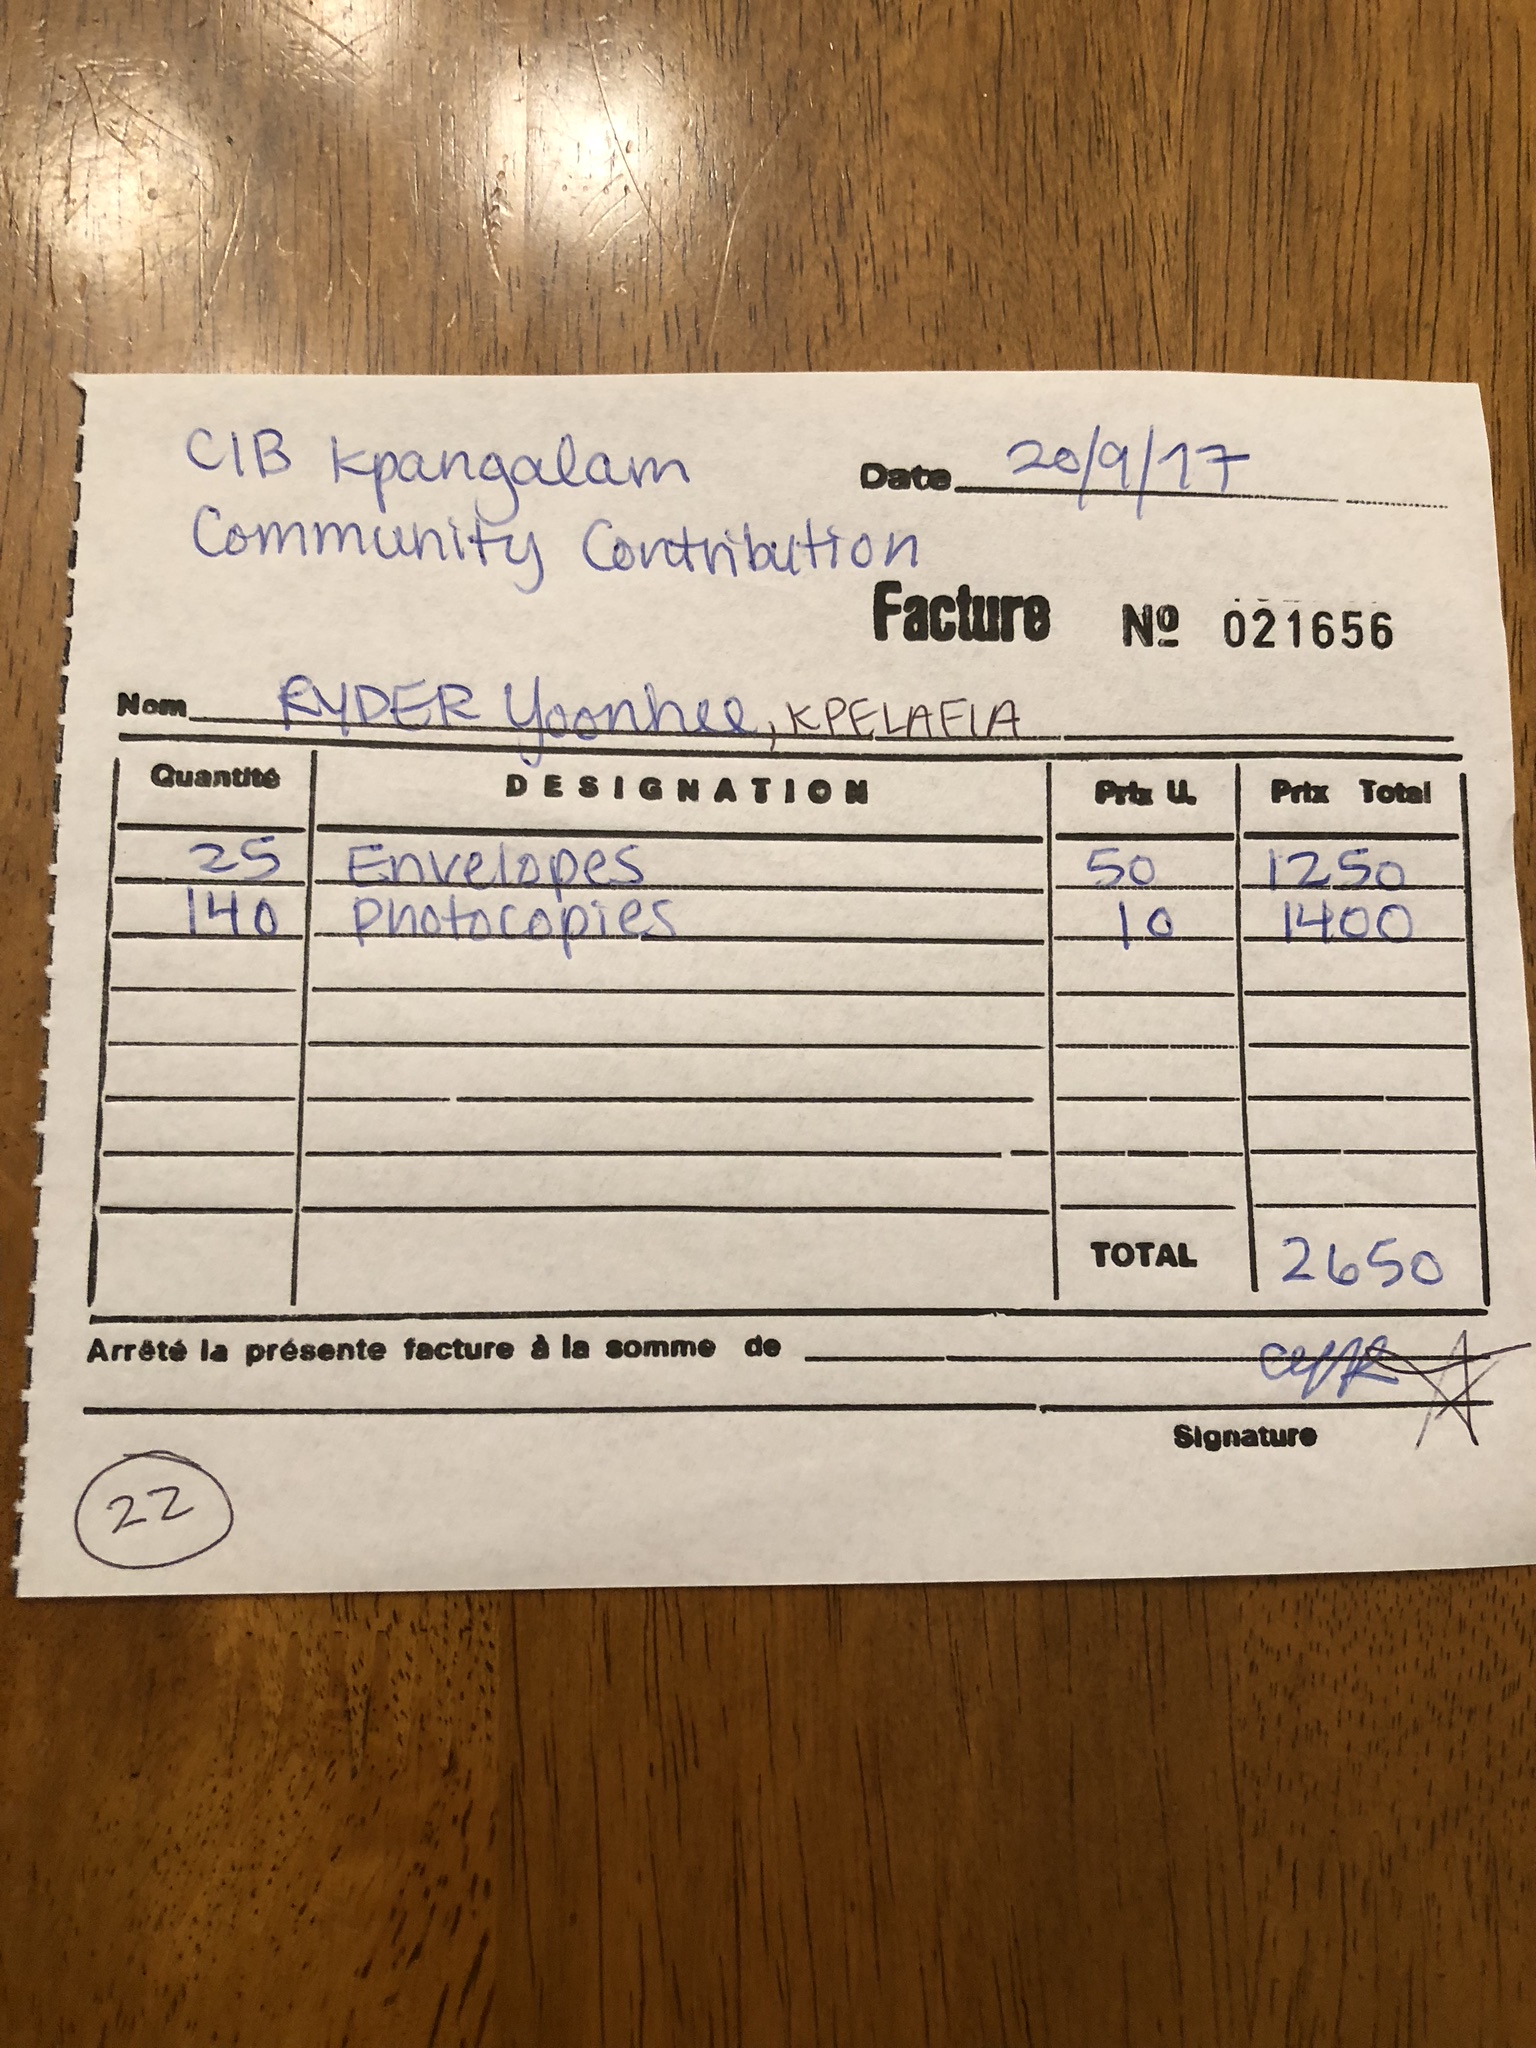 CIB Kpangalam
Date 20/9/17
Community Contribution
Facture Nº 021656
Nom RYDER Yoonhee, KPELAFIA
Quantité DESIGNATION Prix U. Prix Total
25 Envelopes 50 1250
140 Photocopies 10 1400
TOTAL 2650
Arrêté la présente facture à la somme de
Signature
22